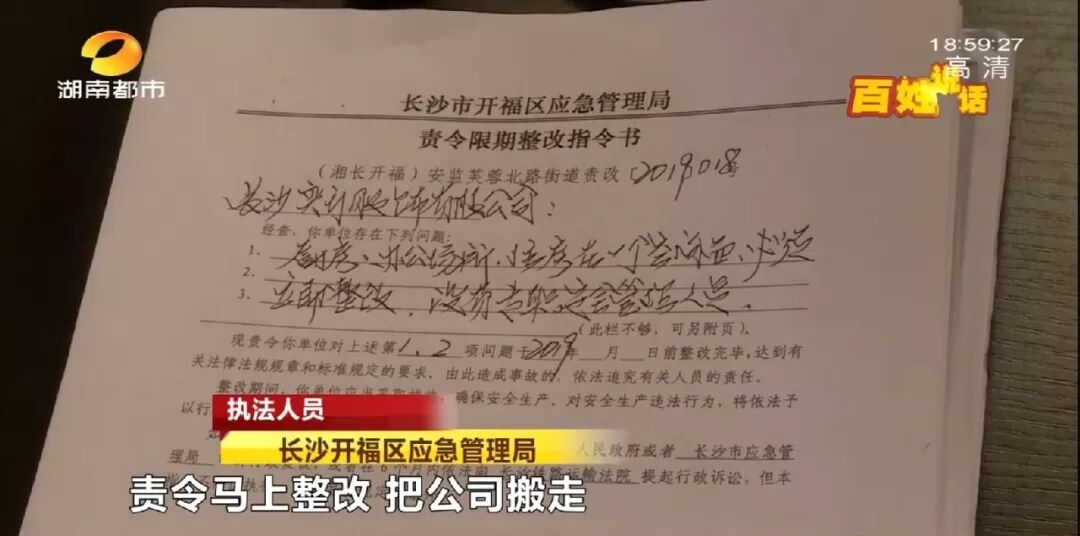 湖南都市
18:59:27
高清
百姓说话
长沙市开福区应急管理局
责令限期整改指令书
(湘长开福)安监芙蓉北路街道责改〔2019018号
长沙 有限公司:
经查,你单位存在下列问题:
1、 办公场所、仓库在一个 面、必须
2、
3、 立即整改、没有专职安全管理人员。
(此栏不够,可另附页)。
现责令你单位对上述第1、2项问题于2019年 月 日前整改完毕,达到有
关法律法规规章和标准规定的要求。由此造成事故的,依法追究有关人员的责任。
整改期间,你单位应当采取措施,确保安全生产。对安全生产违法行为,将依法予
以行
人民政府或者 长沙市应急管
理局 6个月内依法向 长沙铁路运输法院 提起行政诉讼,但本
执法人员
长沙开福区应急管理局
责令马上整改 把公司搬走